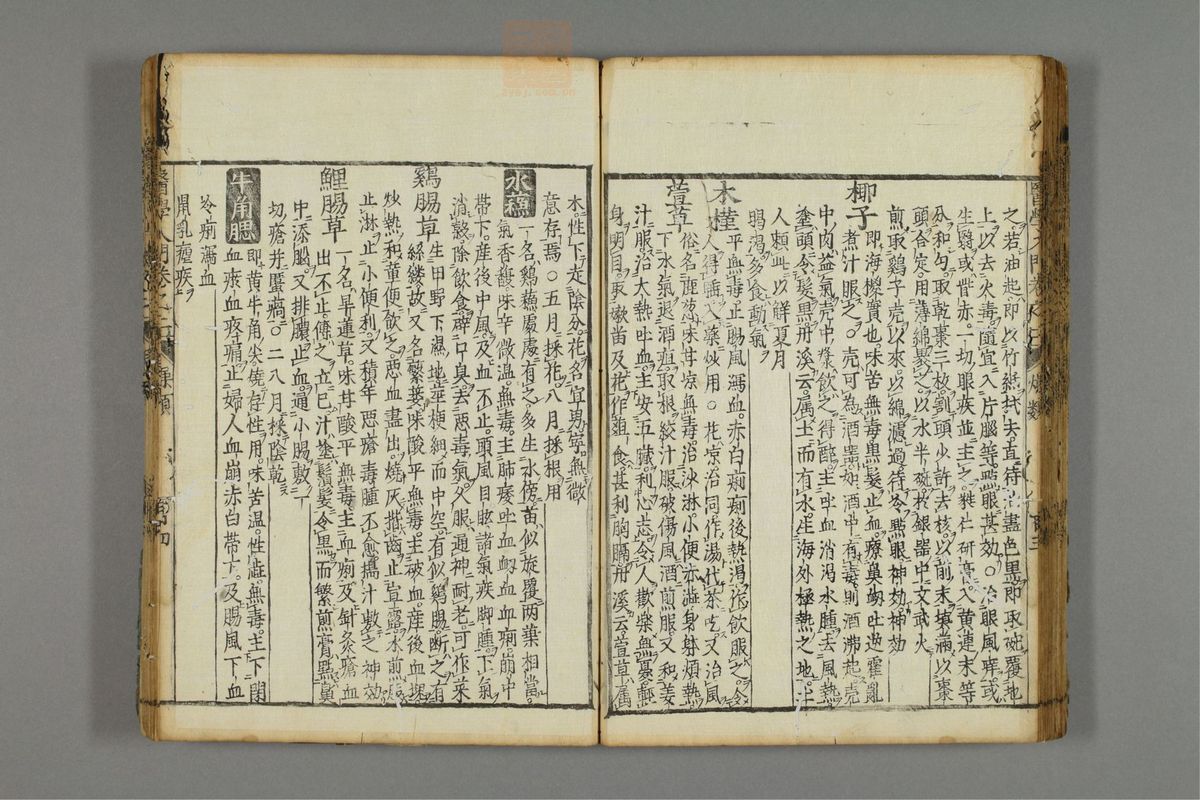 之若油起即以竹紙拭去直待油盡色黑即取碗覆地
上以去火毒隨宜入片腦等點眼甚効○治眼風痒或
生翳或眥赤一切眼疾並主之蕤仁研膏入黃連末等
分和勻取乾棗三枚割頭少許去核以前末填滿以棗
頭合定用薄綿裹之以水半碗於銀器中文武火
煎取鷄子壳以來以綿濾過待冷點眼神効神効
椰子
即海櫕實也味苦無毒黑髮止血療鼻衂吐逆霍亂
煮汁服之○壳可為酒器如酒中有毒則酒沸起壳
中肉益氣壳中漿飲之得醉主吐血消渴水腫去風熱
塗頭令髮黑丹溪云属土而有水生海外極熱之地土
人賴此以解夏月
暍渴多食動氣
木槿
平無毒止腸風瀉血赤白痢痢後熱渴作飲服之令
人得睡入藥炒用○花凉治同作湯代茶吃又治風
萱草
俗名鹿葱味甘凉無毒治沙淋小便赤澁身躰煩熱
下水氣退酒疸取根絞汁服破傷風酒煎服又和姜
汁服治大熱吐血主安五臟利心志令人歡樂無憂輕
身明目取嫩苗及花作葅食甚利胸膈丹溪云萱草属
木性下走陰分花名宜男寧無微
意存焉○五月採花八月採根用
水蘓
一名鷄蘓處處有之多生水傍苗似旋覆兩葉相當
氣香馥味辛微温無毒主肺痿吐血衂血血痢崩中
帶下産後中風及血不止頭風目眩諸氣疾脚腫下氣
消穀除飲食辟口臭去惡毒氣久服通神耐老可作菜
鷄腸草
生田野下濕地莖梗細而中空有似鷄腸斷之有
絲縷故又名蘩蔞味酸平無毒主破血産後血塊
炒熱和童便飲之惡血盡出燒灰揩齒止宣露水煎
止淋止小便利又積年惡瘡毒腫不愈擣汁敷之神効
鯉腸草
一名旱蓮草味甘酸平無毒主血痢及針灸瘡血
出不止傅之立已汁塗鬚髮令黑而繁煎膏點鼻
中添腦又排膿止血通小腸敷一
切瘡并蠶瘑○二八月採陰乾
牛角腮
即黄牛角尖燒存性用味苦温性澁無毒主下閉
血瘀血疼痛止婦人血崩赤白帶下及腸風下血
冷痢瀉血
用乳瘦疾